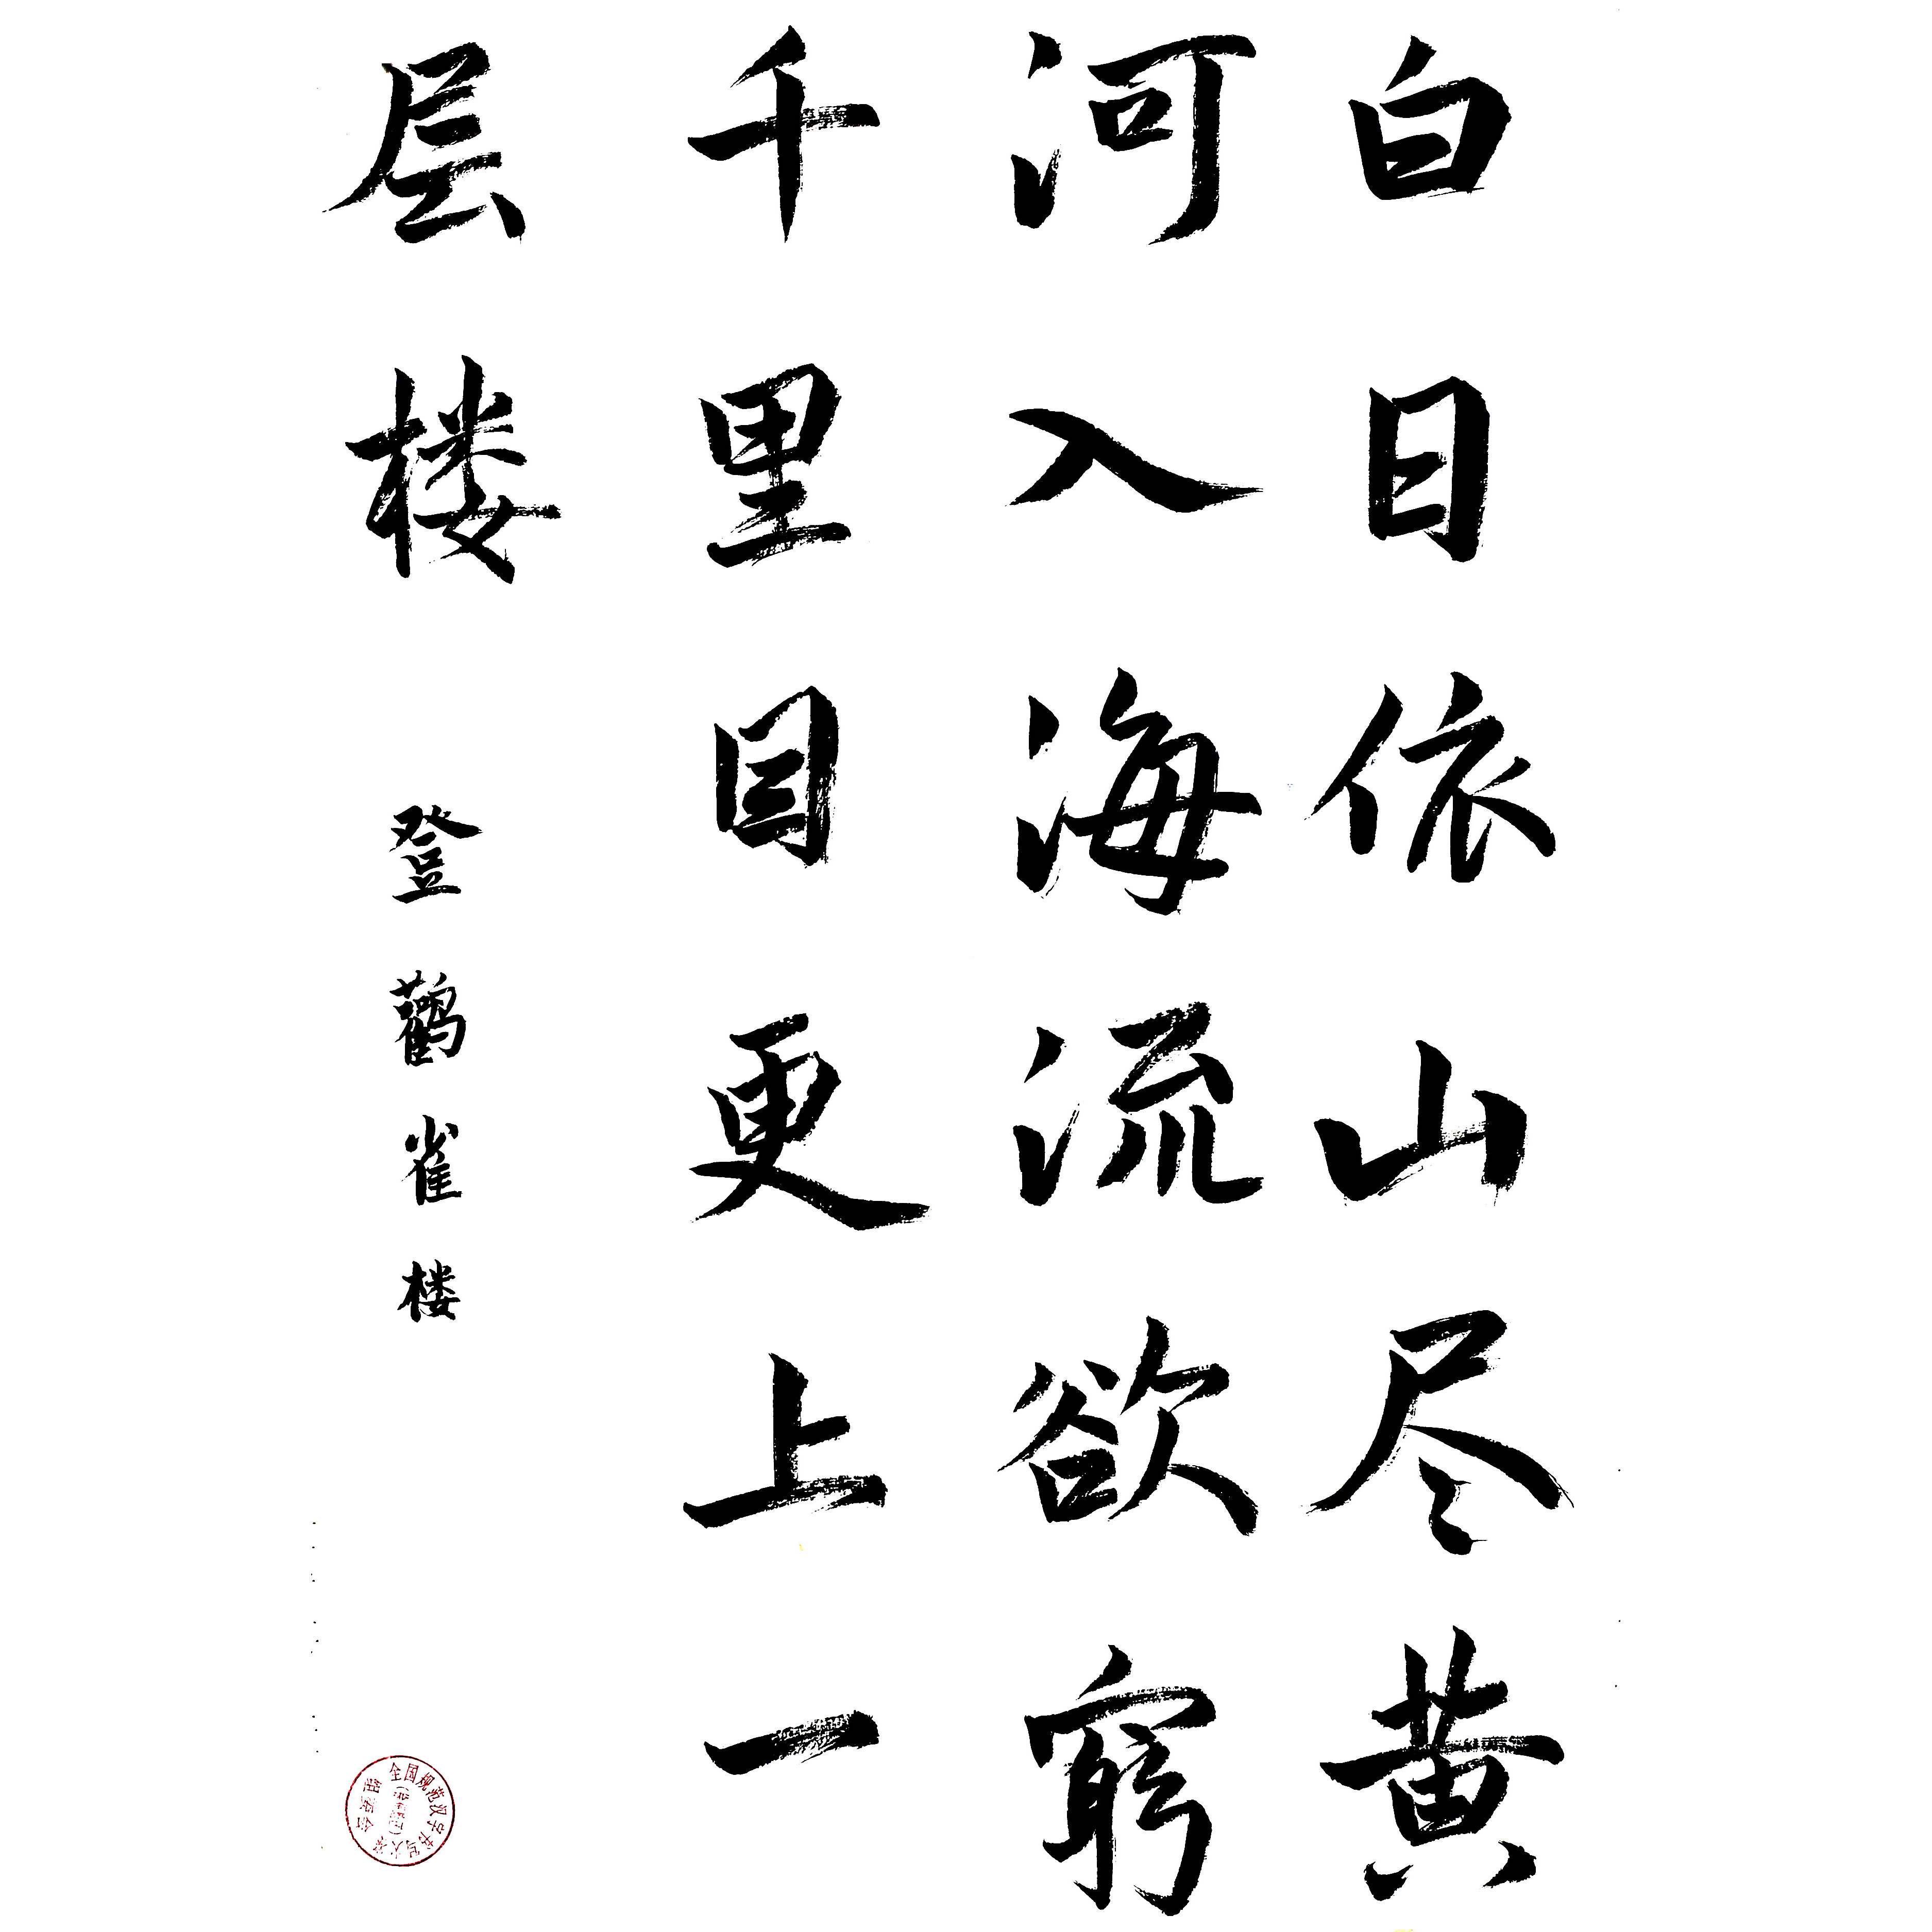 白日依山尽黄
河入海流欲窮
千里目更上一
层楼
登鹳雀楼
全国规范汉字书写大赛